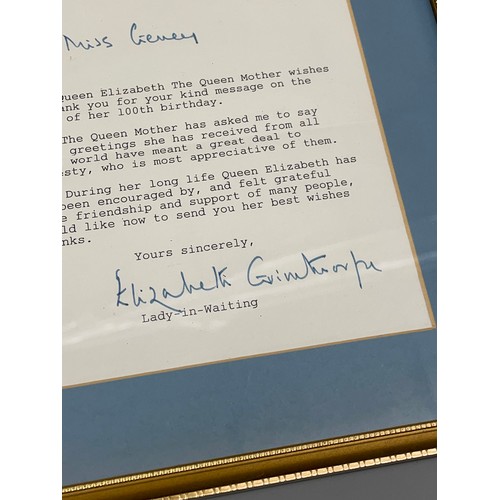 Miss
Queen Elizabeth The Queen Mother wishes
ank you for your kind message on the
of her 100th birthday.
The Queen Mother has asked me to say
greetings she has received from all
world have meant a great deal to
esty, who is most appreciative of them.
During her long life Queen Elizabeth has
been encouraged by, and felt grateful
e friendship and support of many people,
ld like now to send you her best wishes
nks.
Yours sincerely,
Elizabeth Grimthorpe
Lady-in-Waiting